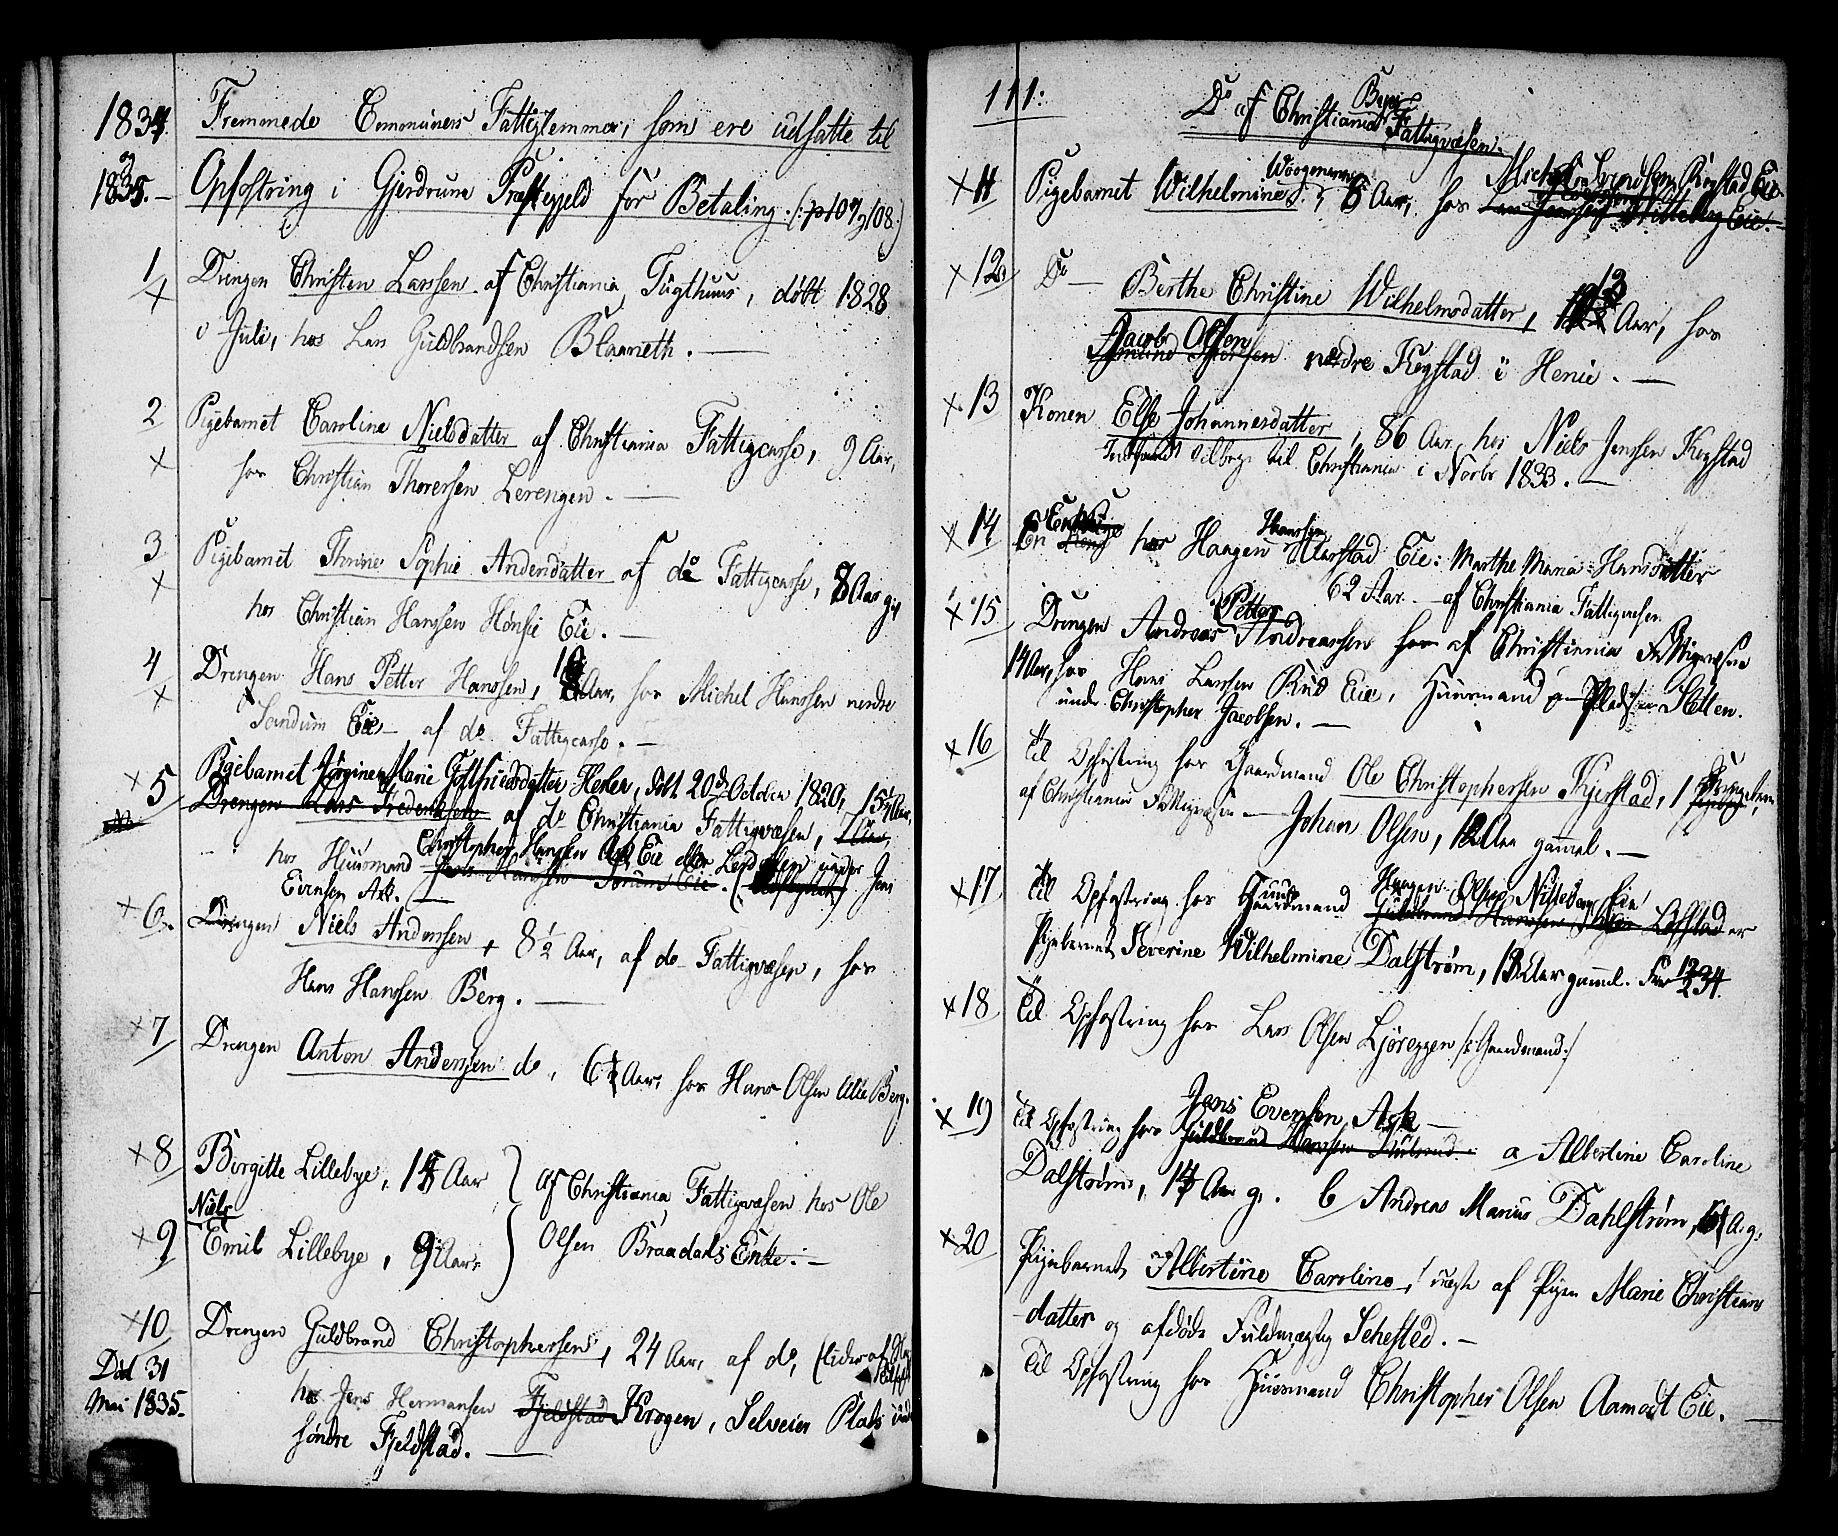 1834
Fremmede Communers Fattiglemmer, som ere udsatte til
1835.
Opfostring i Gjerdrums Præstegjeld for Betaling. (:p 107 & 108:)
1
Drengen Christen Larssen af Christiania Tugthuus, døbt 1828
i Juli, hos Lars Guldbrandsen Blaaneth.
2
Pigebarnet Caroline Nielsdatter af Christiania Fattigcasse, 9 Aar,
hos Christian Thorersen Lerengen.
3
Pigebarnet Thrine Sophie Andersdatter af do Fattigcasse, 8 Aar gl
hos Christian Hanssen Hønsie Eie.
4
Drengen Hans Petter Hanssen, Aar, hos Michel Hanssen nerdre
Sandum Eie af do Fattigcasse.
5
Pigebarnet Jørgine Marie Gotfriedsdatter Heder, døbt 20de October 1820, 15 Aar,
Drengen Lars Frederiksen af do Christiania Fattigvæsen,
hos Huusmand Christopher Hansen Ask Eie under Jens
Evensen Ask.
6.
Drengen Niels Anderssen, 8 1/2 Aar, af do Fattigvæsen, hos
Hans Hanssen Berg.
7
Drengen Anton Anderssen do, 6 1/2 Aar, hos Hans Olsen Berg.
8
Birgitte Lillebye, 15 Aar
af Christiania Fattigvæsen hos Ole
Niels
9
Emil Lillebye, 9 Aar
Olsen Braadals Enke.
10
Drengen Guldbrand Christophersen, 24 Aar, af do, (lider af
Død 31
Mai 1835.
hos Jens Hermansen Fjeldstad Krogen, Selveier Plads under
søndre Fjeldstad.
111:
Do af Christiania Byes Fattigvæsen.
11
Pigebarnet Wilhelmine 8 Aar, hos Michel Svendsen Kogstad Eie
12
Do Berthe Christine Wilhelmsdatter, 13 Aar, hos
Jacob Olsen
nedre Kogstad i Henie.
13
Konen Else Johannesdatter, 86 Aar, hos Niels Jenssen Kogstad
tilbage til Christiania i Novbr 1833.
14
En Enke hos Haagen Hanssen Ularstad Eie: Marthe Maria Hansdatter
62 Aar af Christiania Fattigvæsen
15
Drengen Andreas Petter Andreassen af Christiania Fattigvæsen
14 Aar, hos Hans Larssen Rud Eie, Huusmand Pladsen Sletten.
under Christopher Jacobsen.
16
til Opfostring hos Gaardmand Ole Christophersen Kjerstad, 1 Drengebarn
af Christiania Fattigvæsen Johan Olsen, 12 Aar gammel.
17
til Opfostring hos Huusmand Haagen Olsen Nitteberg Eie er
Pigebarnet Severine Wilhelmine Dalstrøm, 13 Aar gamml.
18
til Opfostring hos Lars Olsen Ljøreggen /: Gaardmand :/
19
til Opfostring hos Jens Evensen Ask
a/ Albertine Caroline
Dalstrøm, 14 Aar g. b Andreas Marius Dahlstrøm, A. g.
20
Pigebarnet Albertine Caroline, uægte af Pigen Marie Christians
datter og afdøde Fuldmægtig Sehested.
til Opfostring hos Huusmand Christopher Olsen Aamodt Eie.